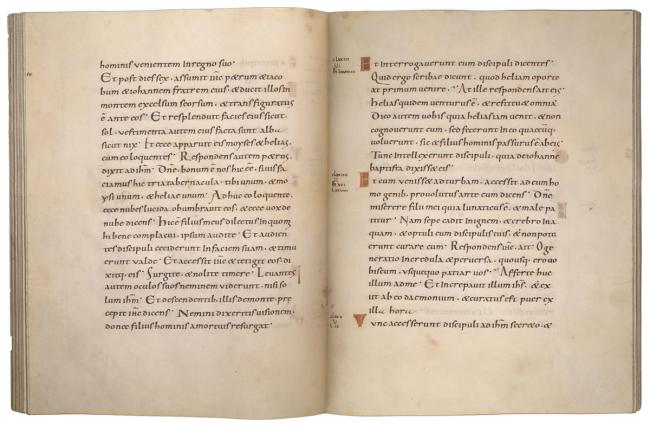 hominis venientem in regno suo
Et post dies sex, assumit ihc petrum & iaco
bum & iohannem fratrem eius, & ducit illos in
montem excelsum seorsum, & transfiguratus
ē ante eos. Et resplenduit facies eius sicut
sol, vestimenta autem eius facta sunt alba
sicut nix. Et ecce apparuit eis moyses & helias,
cum eo loquentes. Respondens autem petrus,
dixit ad ihm. Dne, bonum ē nos hic ēē, si uis fa
ciamus hic tria tabernacula, tibi unum, & mo
ysi unum, & heliae unum. Adhuc eo loquente,
ecce nubes lucida, obumbravit eos, & ecce vox de
nube dicens. Hic ē filius meus dilectus in quo m
ihi bene complacui, ipsum audite. Et audien
tes discipuli ceciderunt in faciem suam, & timu
erunt valde. Et accessit ihc & tetigit eos, di
xitq, eis. Surgite, & nolite timere. Levantes
autem oculos suos neminem viderunt, nisi so
lum ihm. Et descendentib, illis de monte, pre
cepit ihc dicens. Nemini dixeritis visionem,
donec filius hominis a mortuis resurgat.
Et interrogaverunt eum discipuli dicentes.
Quid ergo scribae dicunt, quod heliam oporte
at primum venire. At ille respondens ait eis.
Helias quidem venturus ē, & restituet omnia.
Dico autem vobis quia helias iam venit, & non
cognoverunt eum, sed fecerunt in eo quaecuq,
voluerunt, sic & filius hominis passurus ē ab eis.
Tunc intellexerunt discipuli, quia de iohanne
baptista dixisset eis.
Et cum venisset ad turbam, accessit ad eum ho
mo genib, provolutus ante eum dicens. Dne
miserere filii mei quia lunaticus ē, & male pa
titur. Nam sepe cadit in ignem, & crebro in a
quam, & optuli eum discipulis tuis, & non potu
erunt curare eum. Respondens ihc, ait. O ge
neratio incredula & perversa, quousq, ero vo
biscum, usquequo patiar vos. Afferte huc
illum ad me. Et increpavit illum ihs, & ex
iit ab eo daemonium, & curatus est puer ex
illa hora
Tunc accesserunt discipuli ad ihm secreto, &